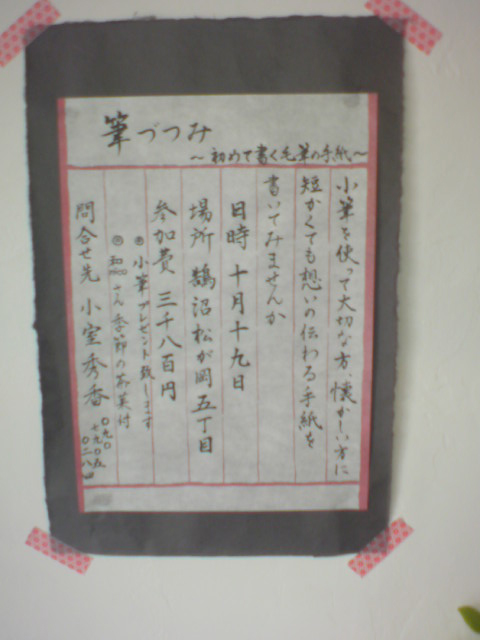 筆づつみ
～初めて書く毛筆の手紙～
小筆を使って大切な方、懐かしい方に
短かくても想いの伝わる手紙を
書いてみませんか
日時 十月十九日
場所 鵠沼松が岡五丁目
参加費 三千八百円
小筆プレゼント致します
さん季節のお菓子付
問合せ先 小室秀香
〇九〇
七九〇五
〇二八四